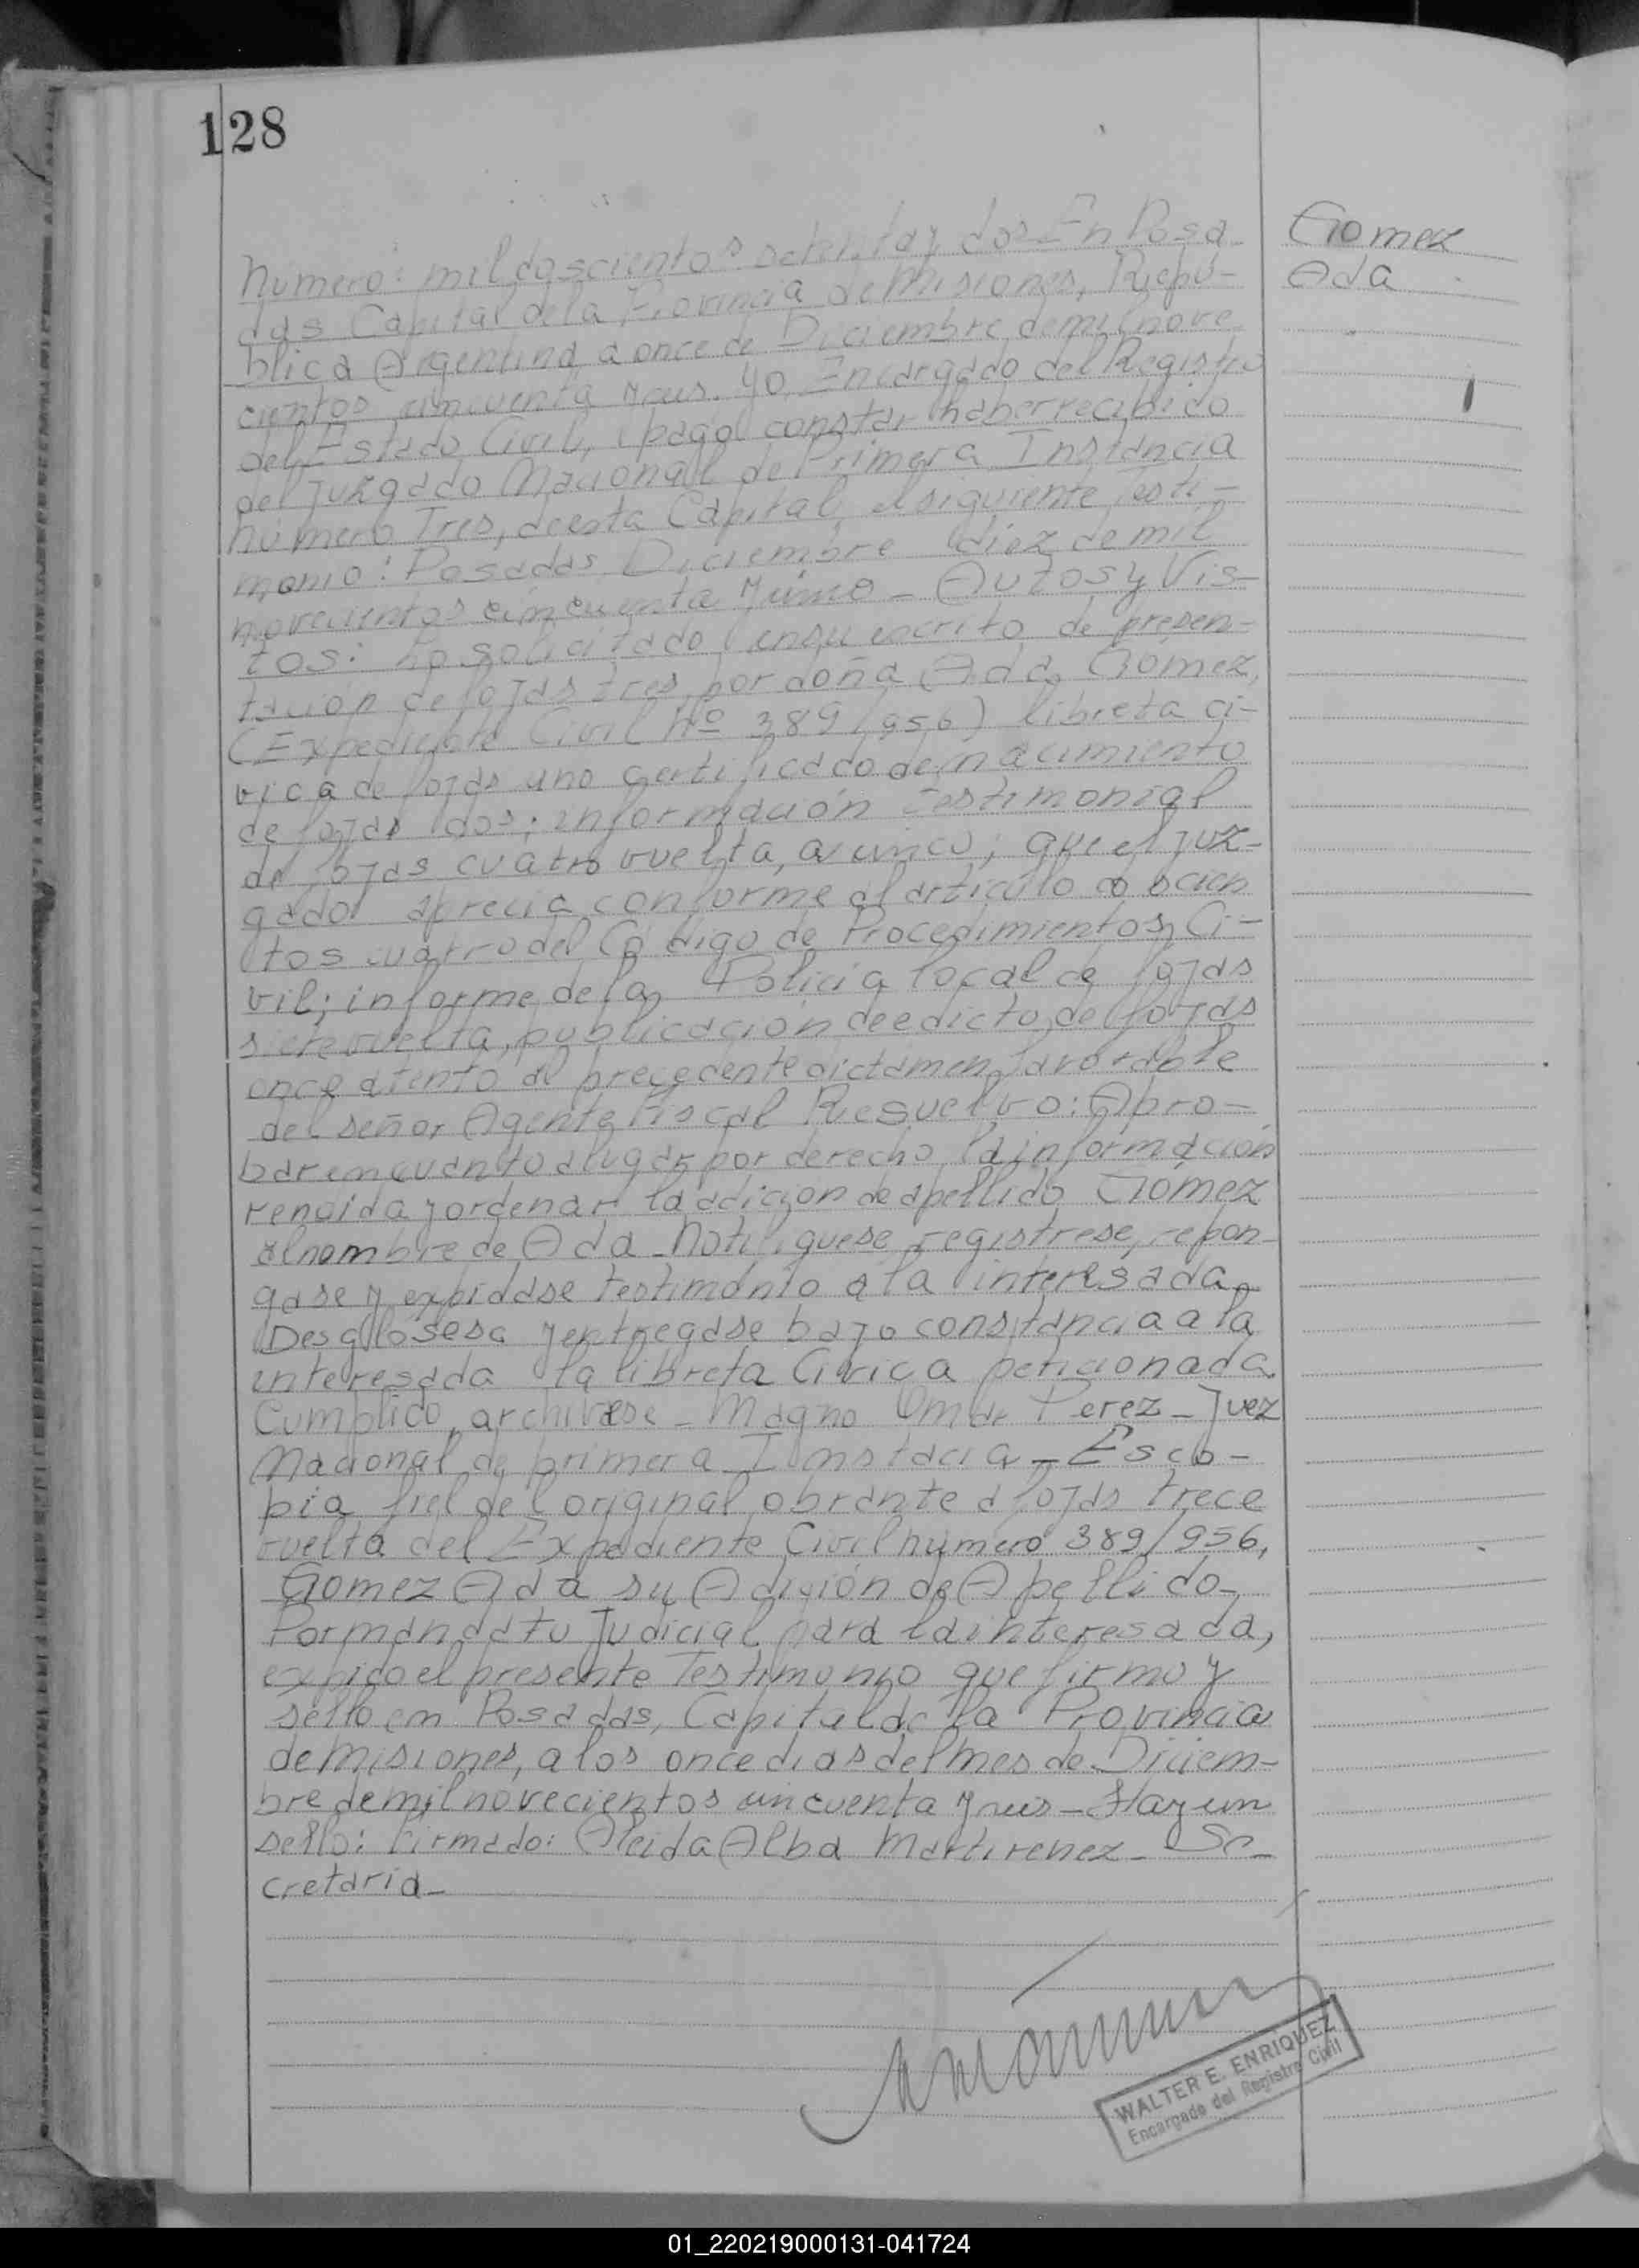 128
Gomez
Ada
Numero: mil doscientos setenta y dos En Posa-
das Capital de la Provincia de Misiones, Repú-
blica Argentina a once de Diciembre de mil nove
cientos cincuenta y seis. Yo, Encargado del Registro
del Estado Civil, hago constar haber recibido
del Juzgado Nacional de Primera Instancia
número Tres, de esta Capital, el siguiente testi-
monio: Posadas, Diciembre diez de mil
novecientos cincuenta y - Autos y Vis-
tos: Lo solicitado en su escrito de presen-
tación de fojas tres, por doña Ada Gómez,
(Expediente Civil Nº 389/956) libreta cí-
vica de fojas uno certificado de nacimiento
de fojas dos; información testimonial
de fojas cuatro vuelta, a cinco; que el juz-
gado aprecia conforme al artículo doscien
tos cuatro del Código de Procedimientos Ci-
vil; informe de la Policia local de fojas
siete vuelta, publicación de edicto de fojas
once atento al precedente dictamen favorable
del señor Agente Fiscal Resuelvo: Apro-
bar en cuanto a lugar por derecho la información
rendida y ordenar la adición de apellido Gómez
al nombre de Ada - Notifiquese, registrese, repon-
gase y expidase testimonio a la interesada
Desglosese y entregase bajo constancia a la
interesada la libreta Civica peticionada
Cumplido, archivese - Magno Omar Perez - Juez
Nacional de primera Instacia - Es co-
pia fiel del original obrante a fojas trece
vuelta del Expediente Civil número 389/956,
Gomez Ada su Adición de Apellido -
Por mandato Judicial para la interesada,
expido el presente Testimonio que firmo y
sello en Posadas, Capital de la Provincia
de Misiones, a los once dias del mes de Diciem-
bre de mil novecientos cincuenta y seis - Hay un
sello: Firmado: Aleida Alba Martirenez - Se-
cretaria -
WALTER E. ENRIQUEZ
Encargado del Registro Civil
01_220219000131-041724